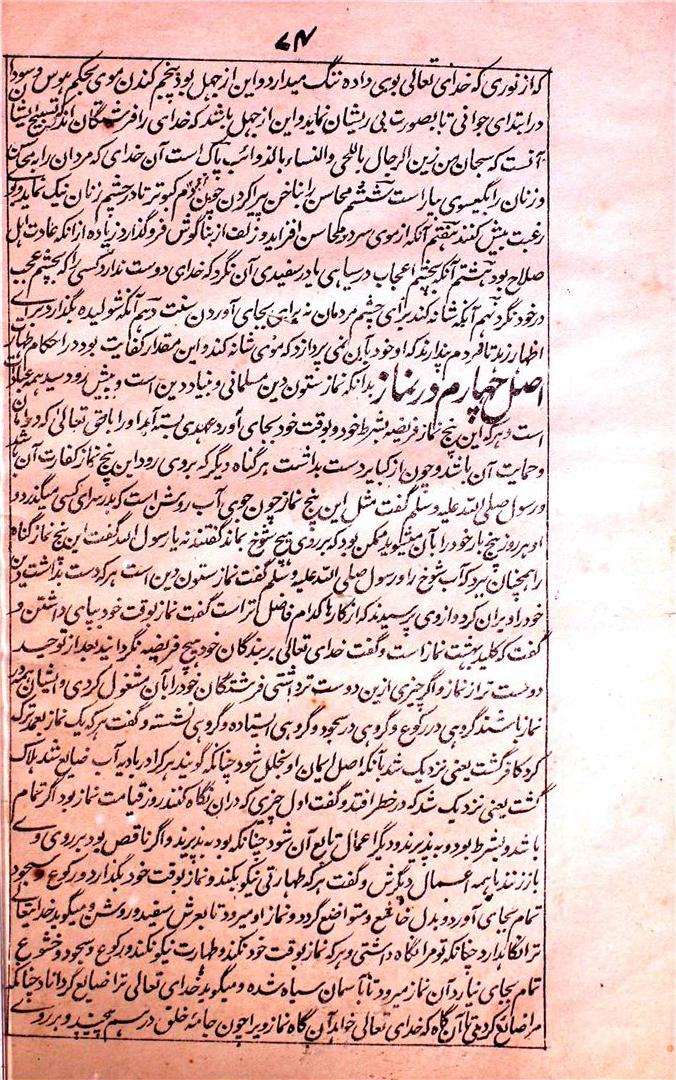 ۷۴
که از نوری که خدای تعالی بوی داده ننگ میدارد و این از جهل بود پنجم کندن موی بحکم هوس و سودا
در ابتدای جوانی تا بصورت بی ریشان نماید و این از جهل باشد که خدای را فرشتگان اند که تسبیح ایشان
آنست که سبحان من زین الرجال باللحی والنساء بالذوائب پاک است آن خدای که مردان را به محاسن
و زنان را بگیسوی بیاراست ششم محاسن را بناخن پیرا کردن چون دم کبوتر تا در چشم زنان نیک نماید و بوی
رغبت بیش کنند هفتم آنکه از موی سر در محاسن افزاید و زلف از بناگوش فرو گذارد زیاده از آنکه عادت اهل
صلاح بود هشتم آنکه بچشم اعجاب در سیاهی یا در سفیدی آن نگرد که خدای دوست ندارد کسی را که بچشم عجب
در خود نگرد نهم آنکه شانه کند برای چشم مردمان نه برای بجای آوردن سنت دهم آنکه شولیده بگذارد برای
اظهار زهد تا مردم پندارند که او خود باین نمی پردازد که موی شانه کند و این مقدار کفایت بود در احکام طهارت
اصل چهارم در نماز بدانکه نماز ستون دین مسلمانی و بنیاد دین است و پیش رو و سید همه عبادات
است و هر که این پنج نماز فریضه بشرط خود و بوقت خود بجای آورد عهدی بسته آید او را باحق تعالی که در امان
و حمایت آن باشد و چون از کبایر دست بداشت هر گناه دیگر که بروی رود این پنج نماز کفارت آن باشد
و رسول صلی الله علیه وسلم گفت مثل این پنج نماز چون جوی آب روشن است که بدر سرای کسی میگذرد و
او هر روز پنج بار خود را بآن میشوید ممکن بود که بر وی هیچ شوخ بماند گفتند نه یا رسول الله گفت این پنج نماز گناه
را همچنان ببرد که آب شوخ را و رسول صلی الله علیه وسلم گفت نماز ستون دین است هر که دست بداشت دین
خود را ویران کرد و از وی پرسیدند که از کارها کدام فاضل تر است گفت نماز بوقت خود بپای داشتن و
گفت که کلید بهشت نماز است و گفت خدای تعالی بر بندگان خود هیچ فریضه نگردانید بعد از توحید
دوست تر از نماز و اگر چیزی ازین دوست تر داشتی فرشتگان خود را بآن مشغول کردی و ایشان همه در
نماز باشند گروهی در رکوع و گروهی در سجود و گروهی ایستاده و گروهی نشسته و گفت هر که یک نماز بعمد ترک
کرد کافر گشت یعنی نزدیک شد بآنکه اصل ایمان او بخلل شود چنانکه گویند هر که را در بادیه آب ضایع شد هلاک
گشت یعنی نزدیک شد که در خطر افتد و گفت اول چیزی که در ان نگاه کنند روز قیامت نماز بود اگر تمام
باشد و بشرط بود به پذیرند و دیگر اعمال تابع آن شود چنانکه بود به پذیرند و اگر ناقص بود بر روی وی
باز زنند با همه اعمال دیگرش و گفت هر که طهارتی نیکو بکند و نماز بوقت خود بگذارد و رکوع و سجود
تمام بجای آورد و بدل خاشع و متواضع گردد و نماز او میرود تا بعرش سفید و روشن و میگوید خدایتعالی
ترا نگاهدارد چنانکه تو مرا نگاه داشتی و هر که نماز بوقت خود نکند و طهارت نیکو نکند و رکوع و سجود و خشوع
تمام بجای نیارد آن نماز میرود تا بآسمان سیاه شده و میگوید خدای تعالی ترا ضایع گرداناد چنانکه
مرا ضایع کردی تا آن گاه که خدای تعالی خواهد آن گاه نماز ویرا چون جامه خلق درهم پیچند و بر روی